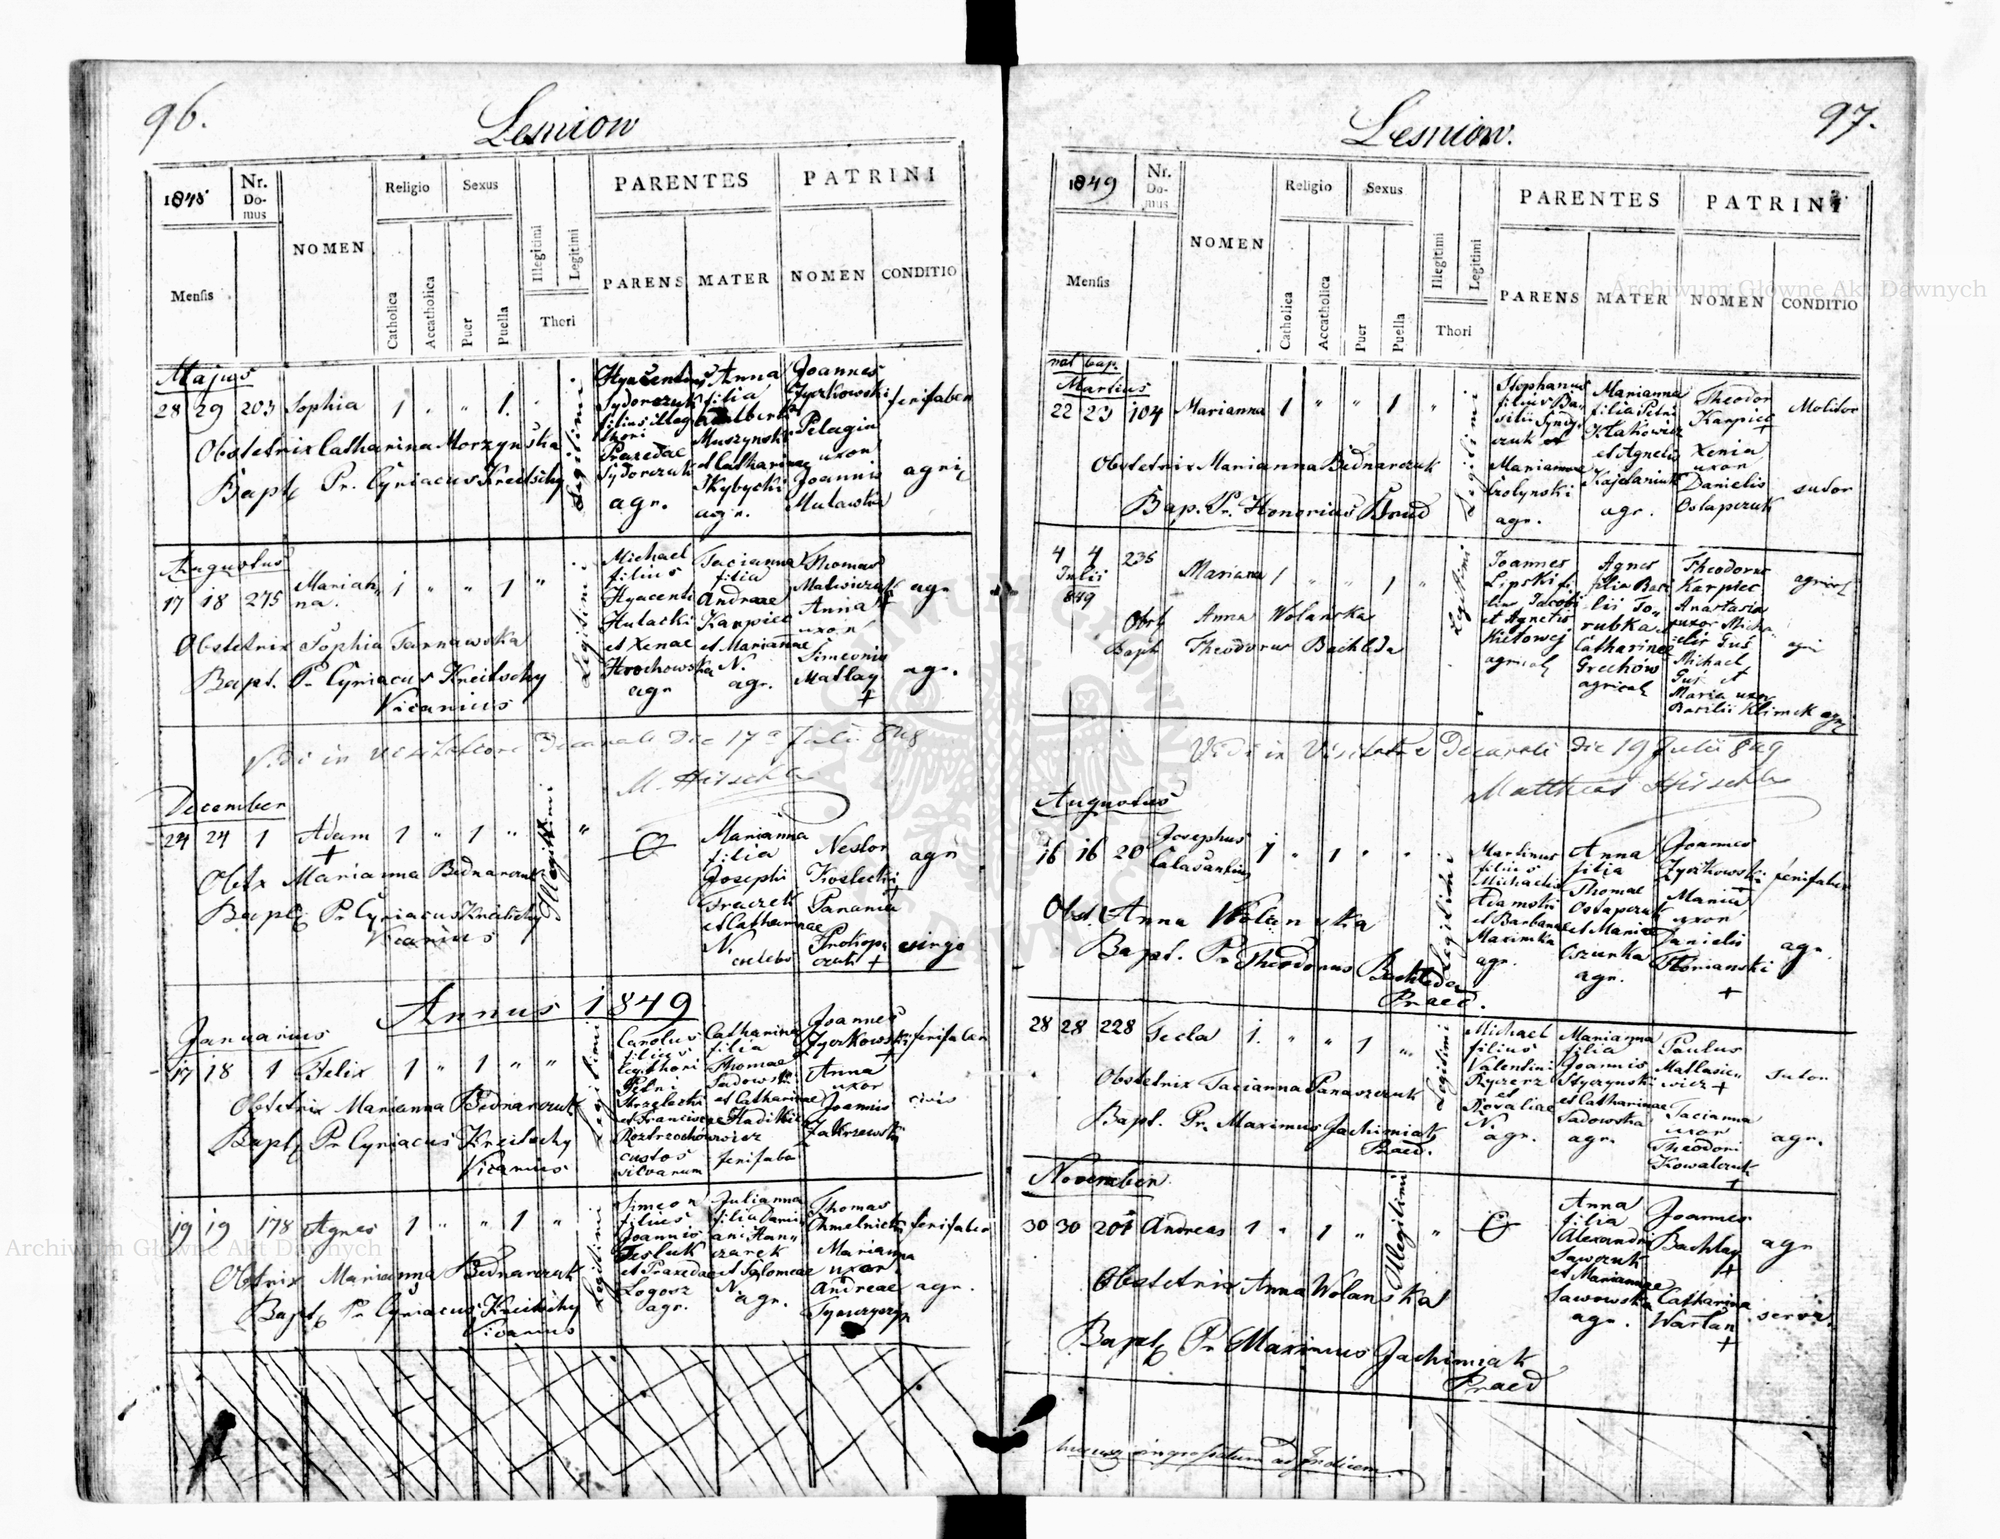 96.
Lesniow
1848
Nr. Domus
NOMEN
Religio
Sexus
Illegitimi
Legitimi
PARENTES
PATRINI
Mensis
Catholica
Accatholica
Puer
Puella
Thori
PARENS
MATER
NOMEN
CONDITIO
Majus
28 29 203 Sophia 1 " " 1. "
Obstetrix Catharina Morzynska
Bapt. Pr. Cyriacus Kreitschy
Legitimi
Hyacentus
Sydorczuk
filius illeg
thori
Praxedae
Sydorczuk
agr.
Anna
filia
Adalberti
Muszynski
et Catharinae
Skybycki
agr.
Joannes
Zyrkowski
Pelagia
uxor
Joannis
Mulawka
fenifaber
agri
Augustus
17 18 275 Marian
na. 1 " " 1 "
Obstetrix Sophia Tarnawska
Bapt. Pr Cyriacus Kreitschy
Vicarius
Legitimi
Michael
filius
Hyacenti
Hulacki
et Xenae
Hrochowska
agr
Tacianna
filia
Andreae
Karpiec
et Mariannae
N.
agr.
Thomas
Matwiczuk
Anna +
uxor
Simeonis
Matlay
+
agr
agr.
Vidi in visitatione Decanali die 17a Julii 848
M. Hirschler
December
24 24 1 Adam 1 " 1 " "
+
Obstx Marianna Bednarczuk
Bapt. Pr Cyriacus Kreitschy
Vicarius
Illegitimi
Marianna
filia
Josephi
Traczek
et Catharinae
N.
caelebs
Nestor
Koslecki
+
Parania
Prokop
czuk +
agr
virgo
Annus 1849
Januarius
17 18 1 Felix 1 " 1 " "
Obstetrix Marianna Bednarczuk
Bapt. Pr Cyriacus Kreitschy
Vicarius
Legitimi
Carolus
filius
leg thori
Petri
Strzelecki
et Franciscae
Roztrzochowicz
custos
silvarum
Catharina
filia
Thomae
Sadowski
et Catharinae
Haditkie
wicz
fenifabe
Joannes
Zyrkowski
+
Anna
uxor
Joannis
Zakrzewski
fenifaber
civis
19 19 178 Agnes 1 " " 1 "
Obtrix Marianna Bednarczuk
Bapt. Pr Cyriacus Kreitschy
Vicarius
Legitimi
Simeon
filius
Joannis
Tesluk
et Praxedae
Logosz
agr.
Julianna
filia Dami
ani Han
czarek
et Salomeae
N.
agr.
Thomas
Chmelnicki
Marianna
uxor
Andreae
fenifaber
agr.
97.
Lesniow.
1849
Nr. Domus
NOMEN
Religio
Sexus
Illegitimi
Legitimi
PARENTES
PATRINI
Mensis
Catholica
Accatholica
Puer
Puella
Thori
PARENS
MATER
NOMEN
CONDITIO
nat bap.
Martius
22 23 104 Marianna 1 " " 1 "
Obstetrix Marianna Bednarczuk
Bap. Pr. Honorius Brud
Legitimi
Stephanus
filius Ba
silii Syndy
czuk et
Mariannae
Szolynski
agr.
Marianna
filia Petri
Klakowicz
et Agnetis
Kajdaniuk
agr.
Theodor
Karpiec
+
Xenia
uxor
Danielis
Ostapczuk
Molitor
sutor
4 4 235
Julii
849
Mariana 1 " " 1 "
Obst. Anna Wolanska
Bapt Theodorus Bachleda
Legitimi
Joannes
Lipski fi
lius Jacobi
et Agnetis
Kietowej
agricol
Agnes
filia Basi
lii To
rubka et
Catharinae
Grechów
agricol
Theodorus
Karpiec
Anastasia
uxor Micha
elis Gus
Michael
Gus et
Maria uxor
Basilii Klimek agr
agricol
agri
Vidi in Visitatne Decanali die 19 Julii 849
Matthias Hirschler
Augustus
16 16 20 Josephus
Calasantius 1 " 1 " "
Obst. Anna Wolanska
Bapt. Pr Theodorus Bachleda
Praed.
Legitimi
Martinus
filius
Michaelis
Adamski
et Barbarae
Maximka
agr.
Anna
filia
Thomae
Ostapczuk
et Mariae
Csiurka
agr.
Joannes
Zyrkowski
+
Maria
uxor
Danielis
Florianski
+
fenifaber
agr.
28 28 228 Tecla 1. " " 1 "
Obstetrix Tacianna Panaszczuk
Bapt. Pr. Maximus Jachimiak
Praed.
Legitimi
Michael
filius
Valentini
Ryzerz
et
Rosaliae
N.
agr.
Marianna
filia
Joannis
Styczynski
et Catharinae
Sadowska
agr.
Paulus
Matlasie
wicz +
Tacianna
uxor
Theodori
Kowalczuk
+
sutor
agr.
November
30 30 201 Andreas 1 " 1 " "
Obstetrix Anna Wolanska
Bapt. Pr Maximus Jachimiak
Praed
Illegitimi
Anna
filia
Alexandri
Sawczuk
et Mariannae
Sawowska
agr.
Joannes
Bachlay
+
Catharina
Warlan
+
agr
serva.
ingrossatum ad Indicem
Archiwum Główne Akt Dawnych
Archiwum Główne Akt Dawnych
ARCHIWUM GŁÓWNE AKT DAWNYCH